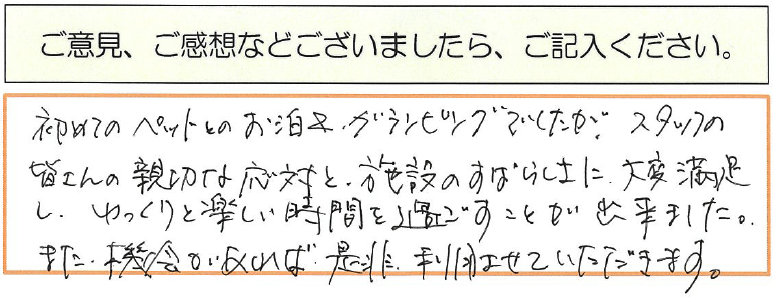 ご意見、ご感想などございましたら、ご記入ください。
初めてのペットとのお泊り、グランピングでしたが、スタッフの
皆さんの親切な応対と、施設のすばらしさに、大変満足
し、ゆっくりと楽しい時間を過ごすことが出来ました。
また、機会があれば、是非、利用させていただきます。